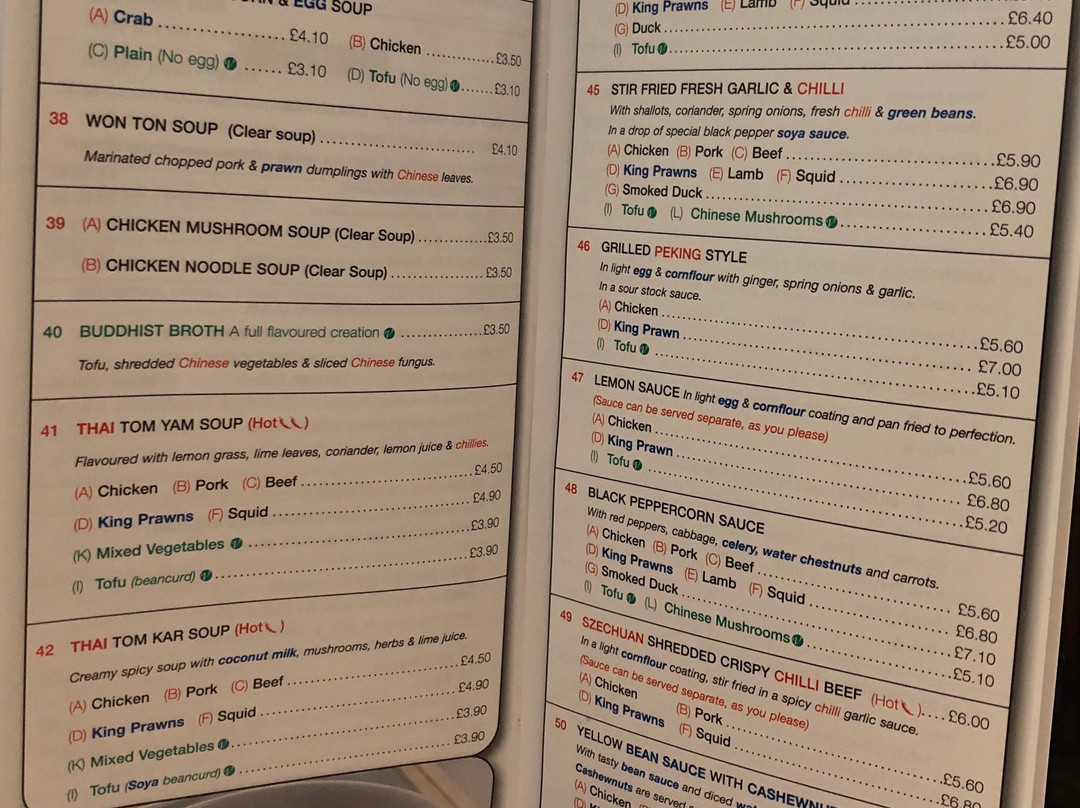 & EGG SOUP
(A) Crab .................... £4.10 (B) Chicken ............... £3.50
(C) Plain (No egg) V ...... £3.10 (D) Tofu (No egg) V ....... £3.10
38 WON TON SOUP (Clear soup) ......................... £4.10
Marinated chopped pork & prawn dumplings with Chinese leaves.
39 (A) CHICKEN MUSHROOM SOUP (Clear Soup) ............... £3.50
(B) CHICKEN NOODLE SOUP (Clear Soup) ................... £3.50
40 BUDDHIST BROTH A full flavoured creation V ............... £3.50
Tofu, shredded Chinese vegetables & sliced Chinese fungus.
41 THAI TOM YAM SOUP (Hot)
Flavoured with lemon grass, lime leaves, coriander, lemon juice & chillies.
(A) Chicken (B) Pork (C) Beef ........................... £4.50
(D) King Prawns (F) Squid ............................... £4.90
(K) Mixed Vegetables V .................................. £3.90
(I) Tofu (beancurd) V ................................... £3.90
42 THAI TOM KAR SOUP (Hot)
Creamy spicy soup with coconut milk, mushrooms, herbs & lime juice.
(A) Chicken (B) Pork (C) Beef ........................... £4.50
(D) King Prawns (F) Squid ............................... £4.90
(K) Mixed Vegetables V .................................. £3.90
(I) Tofu (Soya beancurd) V .............................. £3.90
(D) King Prawns (E) Lamb (F) Squid
(G) Duck ................................................ £6.40
(I) Tofu V .............................................. £5.00
45 STIR FRIED FRESH GARLIC & CHILLI
With shallots, coriander, spring onions, fresh chilli & green beans.
In a drop of special black pepper soya sauce.
(A) Chicken (B) Pork (C) Beef ........................... £5.90
(D) King Prawns (E) Lamb (F) Squid ...................... £6.90
(G) Smoked Duck ......................................... £6.90
(I) Tofu V (L) Chinese Mushrooms V ...................... £5.40
46 GRILLED PEKING STYLE
In light egg & cornflour with ginger, spring onions & garlic.
In a sour stock sauce.
(A) Chicken ............................................. £5.60
(D) King Prawn .......................................... £7.00
(I) Tofu V .............................................. £5.10
47 LEMON SAUCE In light egg & cornflour coating and pan fried to perfection.
(Sauce can be served separate, as you please)
(A) Chicken ............................................. £5.60
(D) King Prawn .......................................... £6.80
(I) Tofu V .............................................. £5.20
48 BLACK PEPPERCORN SAUCE
With red peppers, cabbage, celery, water chestnuts and carrots.
(A) Chicken (B) Pork (C) Beef ........................... £5.60
(D) King Prawns (E) Lamb (F) Squid ...................... £6.80
(G) Smoked Duck ......................................... £7.10
(I) Tofu V (L) Chinese Mushrooms V ...................... £5.10
49 SZECHUAN SHREDDED CRISPY CHILLI BEEF (Hot).... £6.00
In a light cornflour coating, stir fried in a spicy chilli garlic sauce.
(Sauce can be served separate, as you please)
(A) Chicken (B) Pork .................................... £5.60
(D) King Prawns (F) Squid ............................... £6.80
50 YELLOW BEAN SAUCE WITH
With tasty bean sauce and diced
Cashewnuts are served
(A) Chicken
(D)